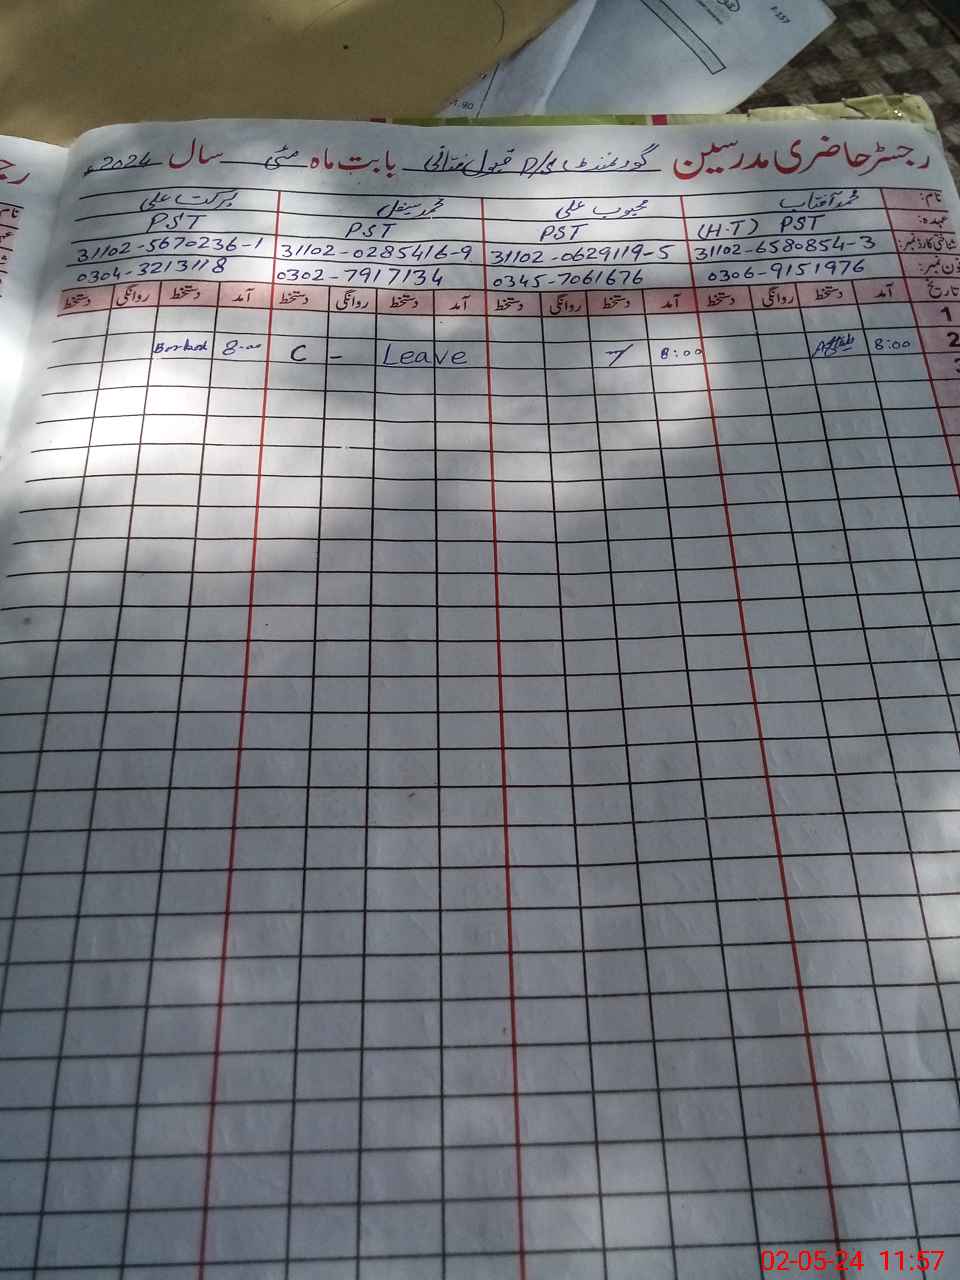 رجسٹر حاضری مدرسین گورنمنٹ P/S قبول بابت ماہ مئی سال 2024ء
نام: محمد آفتاب محبوب علی محمد سیفل برکت علی
عہدہ: PST (H-T) PST PST PST
شناختی کارڈ نمبر: 31102-6580854-3 31102-0629119-5 31102-0285416-9 31102-5670236-1
فون نمبر: 0306-9151976 0345-7061676 0302-7917134 0304-3213118
تاریخ آمد دستخط روانگی دستخط آمد دستخط روانگی دستخط آمد دستخط روانگی دستخط آمد دستخط روانگی دستخط
1
2 8:00 8:00 Leave - C 8-00 Barkat
3
1.90
02-05-24 11:57